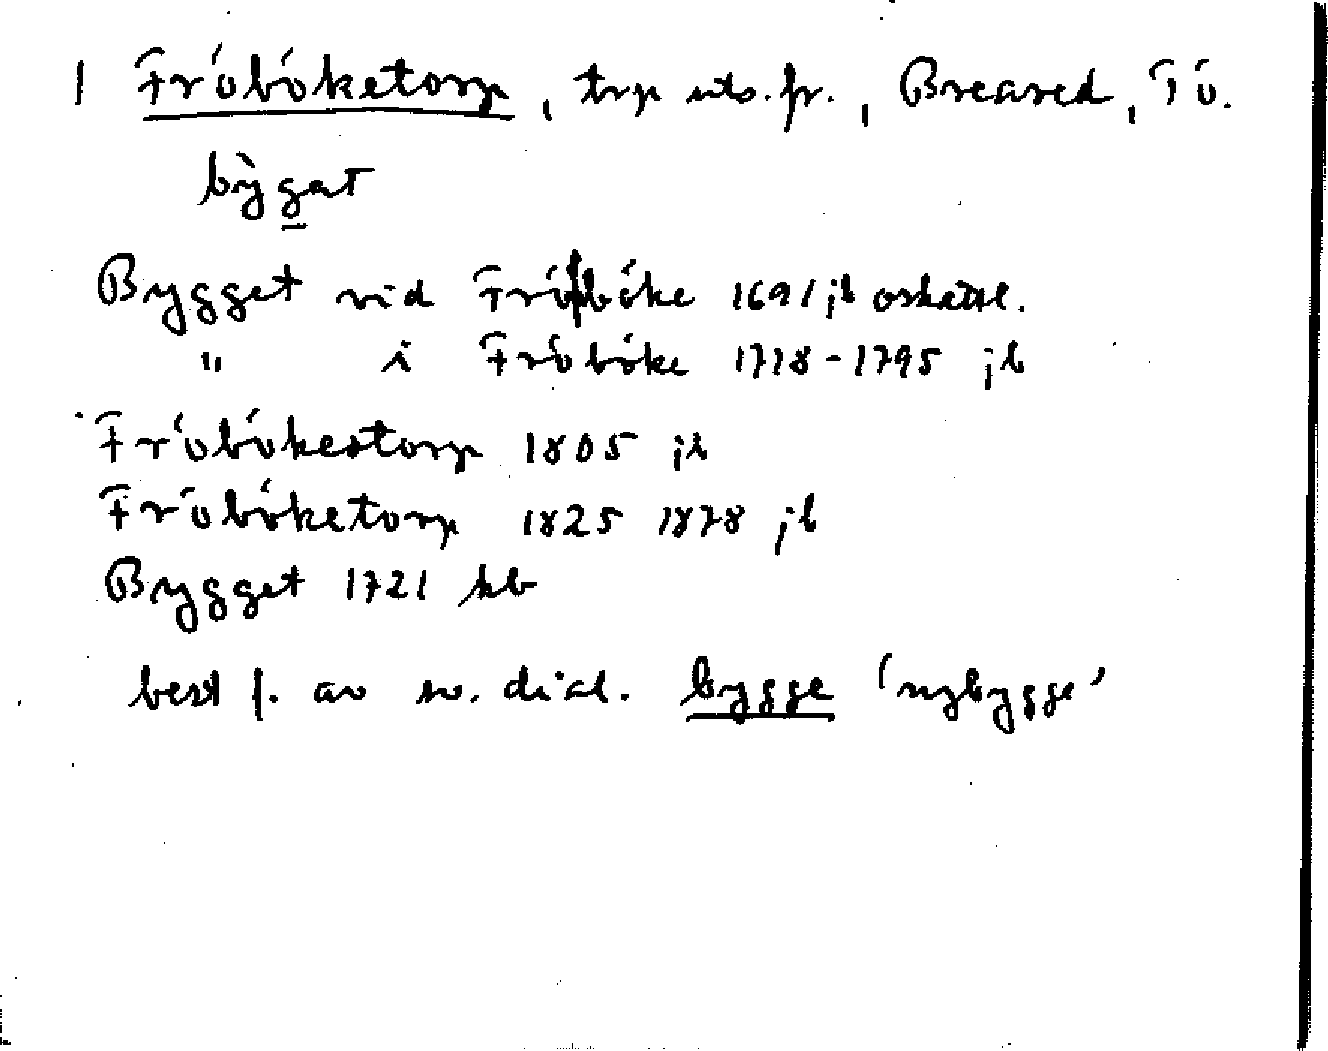 1 Fröböketorp, torp uts. fr., Breared, Tö.
bỳgat
Bygget vid Fröböke 1691 jb oskattl.
" i Fröböke 1718-1795 jb
Fröbökestorp 1805 jb
Fröböketorp 1825 1878 jb
Bygget 1721 kb
best f. av sv. dial. bygge 'nybygge'